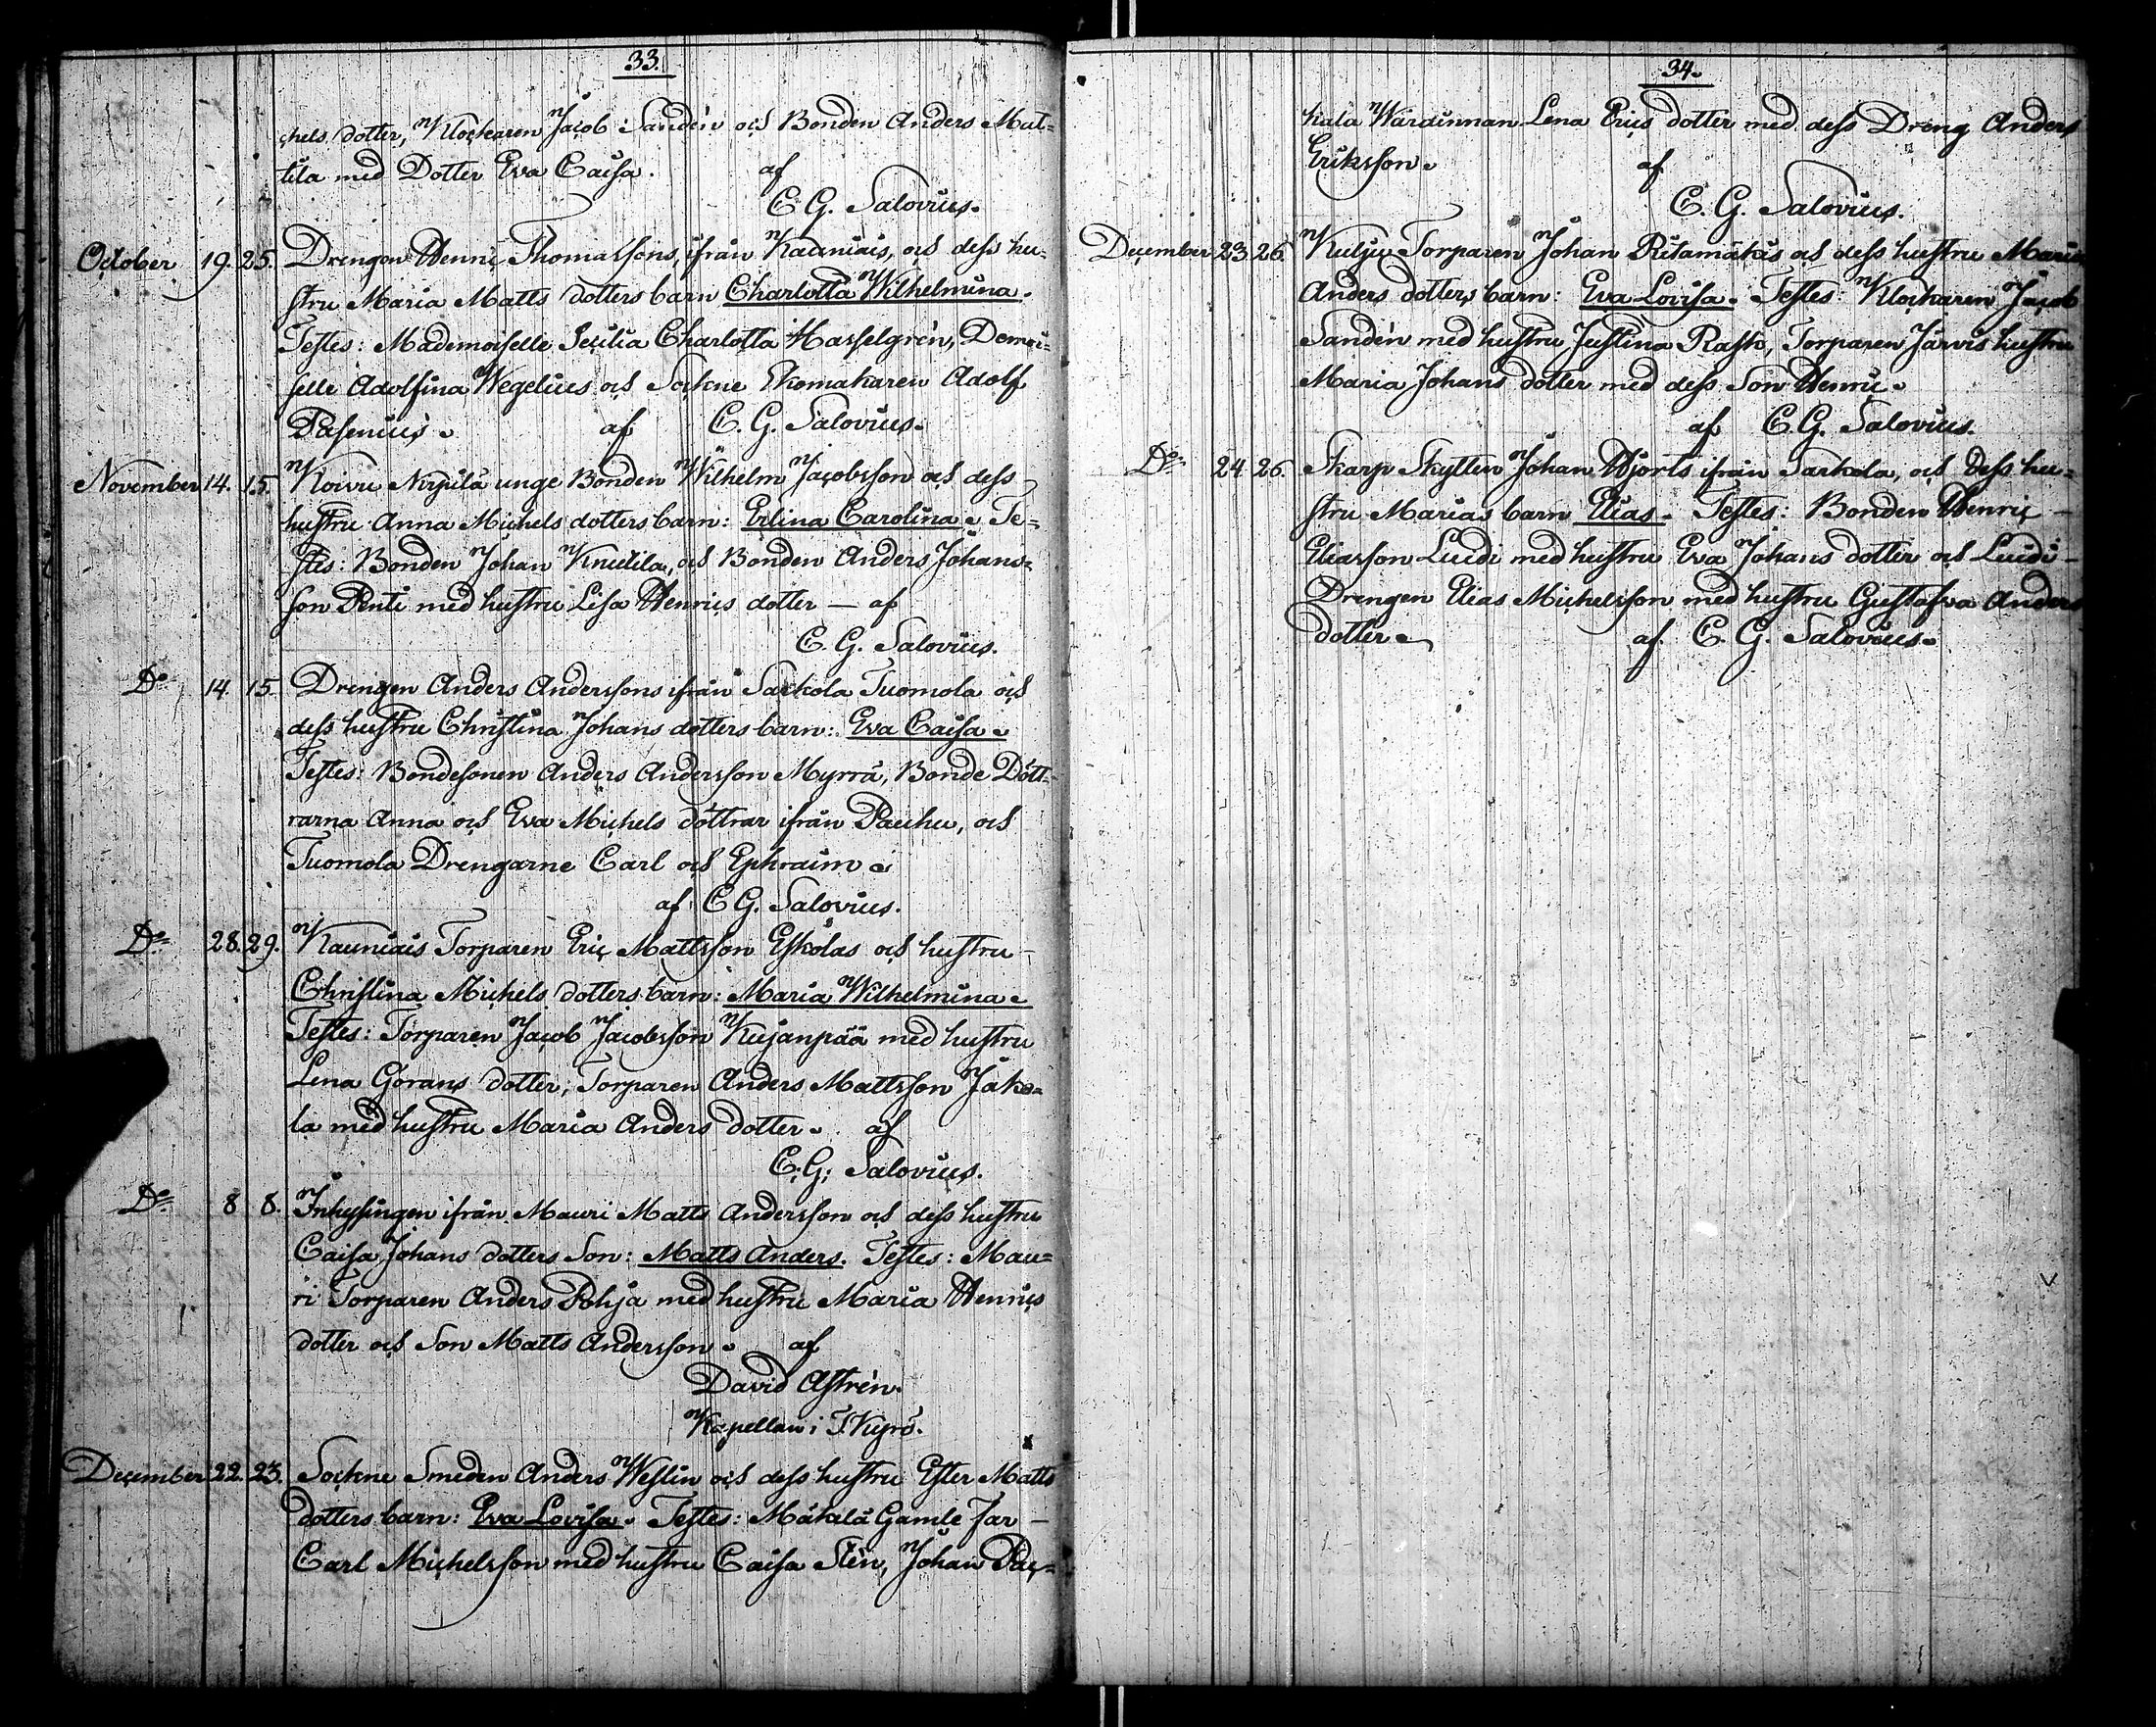 33.
chels dotter, Klockaren Jacob Sandén och Bonden Anders Mut=
tila med Dotter Eva Caisa. af
C. G. Salovius.
October 19. 25. Drengen Henric Thomassons, ifrån Kauniais, och dess hu=
stru Maria Matts dotters barn Charlotta Wilhelmina.
Testes: Mademoiselle Cecilia Charlotta Hasselgrén, Demoi=
selle Adolfina Wegelius och Sockne Skomakaren Adolf
Pasenius. af C. G. Salovius.
November 14. 15. Koivu unge Bonden Wilhelm Jacobsson och dess
hustru Anna Michels dotters barn: Erlina Carolina. Te=
stes: Bonden Johan Knutila, och Bonden Anders Johans=
son Penti med hustru Lisa Henrics dotter — af
C. G. Salovius.
Do 14. 15. Drengen Anders Anderssons ifrån Sarkola Tuomola och
dess hustru Christina Johans dotters barn: Eva Caisa.
Testes: Bondesonen Anders Andersson Myrrä, Bonde Dött=
rarna Anna och Eva Michels döttrar ifrån Pauhu, och
Tuomola Drengarne Carl och Ephraim.
af C G. Salovius.
Do 28. 29. Kauniais Torparen Eric Mattsson Eskolas och hustru
Christina Michels dotters barn: Maria Wilhelmina.
Testes: Torparen Jacob Jacobsson Kujanpää med hustru
Lena Görans dotter, Torparen Anders Mattsson Jako=
la med hustru Maria Anders dotter. af
C. G. Salovius.
Do 8 8. Inhysingen ifrån Mauri Matts Andersson och dess hustru
Caisa Johans dotters Son: Matts Anders. Testes: Mau=
ri Torparen Anders Pohja med hustru Maria Henrics
dotter och Son Matts Andersson. af
David Astrén.
Kapellan i T.Kyrö.
December 22. 23. Sockne Smeden Anders Westin och dess hustru Ester Matts
dotters barn: Eva Lovisa. Testes: Mäkelä Gamle Far
Carl Michelsson med hustru Caisa Stén, Johan Pac=
34.
kala Wärdinnan Lena Erics dotter med dess Dreng Anders
Eriksson. af
C. G. Salovius.
December 23 26. Kulju Torparen Johan Ritamäkis och dess hustru Maria
Anders dotters barn: Eva Lovisa. Testes: Klockaren Jacob
Sandén med hustru Justina Rask, Torparen Järvis hustru
Maria Johans dotter med dess Son Henric.
af C. G. Salovius.
Do 24 26. Skarp Skytten Johan Hjorts ifrån Sarkola, och Dess hu=
stru Marias barn Elias. Testes: Bonden Henric
Eliasson Luidi med hustru Eva Johans dotter och Luidi
Drengen Elias Michelsson med hustru Gustafva Anders
dotter. af C. G. Salovius.